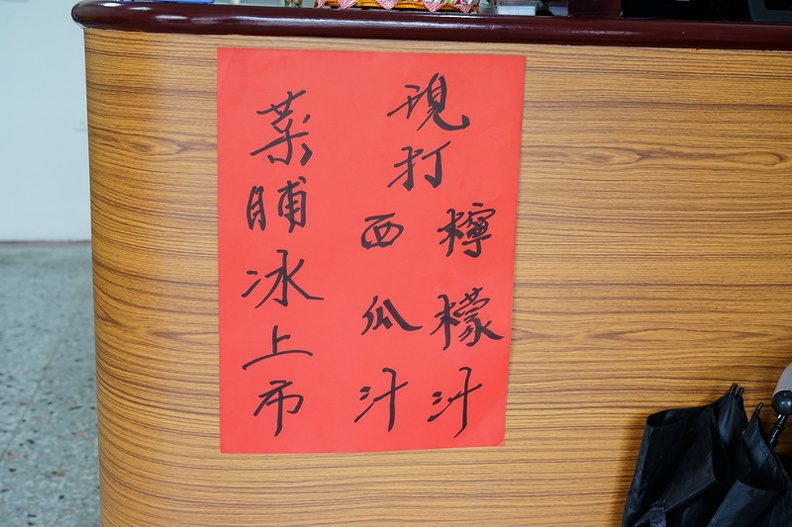 現打
檸檬汁
西瓜汁
菜脯冰上市